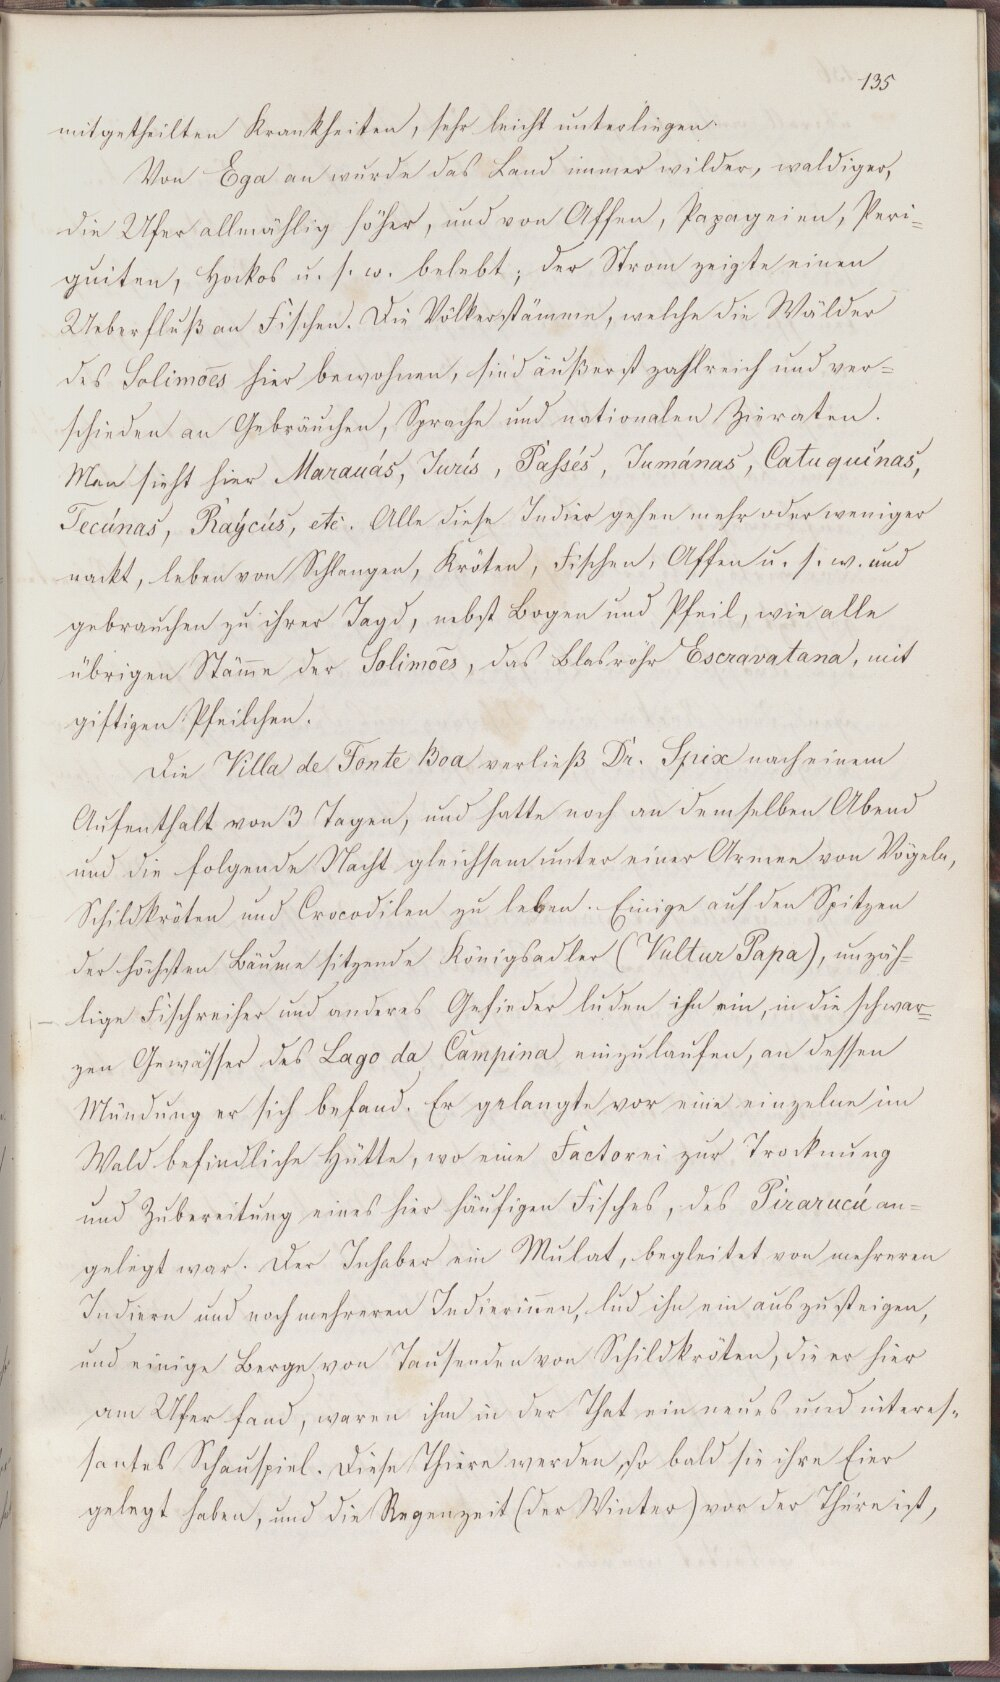 135
mitgetheilten Krankheiten, sehr leicht unterliegen.
Von Ega an wurde das Land immer wilder, waldiger,
die Ufer allmählig höher, und von Affen, Papageien, Peri-
quiten, Hockos u. s. w. belebt; der Strom zeigte einen
Ueberfluß an Fischen. Die Völkerstämme, welche die Wälder
des Solimoẽs hier bewohnen, sind äußerst zahlreich und ver=
schieden an Gebräuchen, Sprache und nationalen Zieraten.
Man sieht hier Marauás, Juris, Passés, Jumánas, Catuquínas,
Tecúnas, Raýcús, etc. Alle diese Indier gehen mehr oder weniger
nackt, leben von Schlangen, Kröten, Fischen, Affen u. s. w. und
gebrauchen zu ihrer Jagd, nebst Bogen und Pfeil, wie alle
übrigen Stäm̄e der Solimoẽs, das Blasrohr Escravatana, mit
giftigen Pfeilchen.
Die Villa de Fonte Boa verließ Dr. Spix nach einem
Aufenthalt von 3 Tagen, und hatte noch an demselben Abend
und die folgende Nacht gleichsam unter einer Armee von Vögeln,
Schildkröten und Crocodilen zu leben. Einige auf den Spitzen
der höchsten Bäume sitzende Königsadler (Vultur Papa), unzäh=
lige Fischreiher und anderes Gefieder luden ihn ein, in die schwar=
zen Gewässer des Lago da Campina einzulaufen, an dessen
Mündung er sich befand. Er gelangte vor eine einzelne im
Wald befindliche Hütte, wo eine Factorei zur Trocknung
und Zubereitung eines hier häufigen Fisches, des Pirarucú an=
gelegt war. Der Inhaber ein Mulat, begleitet von mehreren
Indiern und noch mehreren Indierin̄en, lud ihn ein auszusteigen,
und einige Berge von Tausenden von Schildkröten, die er hier
am Ufer fand, waren ihm in der That ein neues und interes-
santes Schauspiel. Diese Thiere werden, so bald sie ihre Eier
gelegt haben, und die Regenzeit (der Winter) vor der Thüre ist,